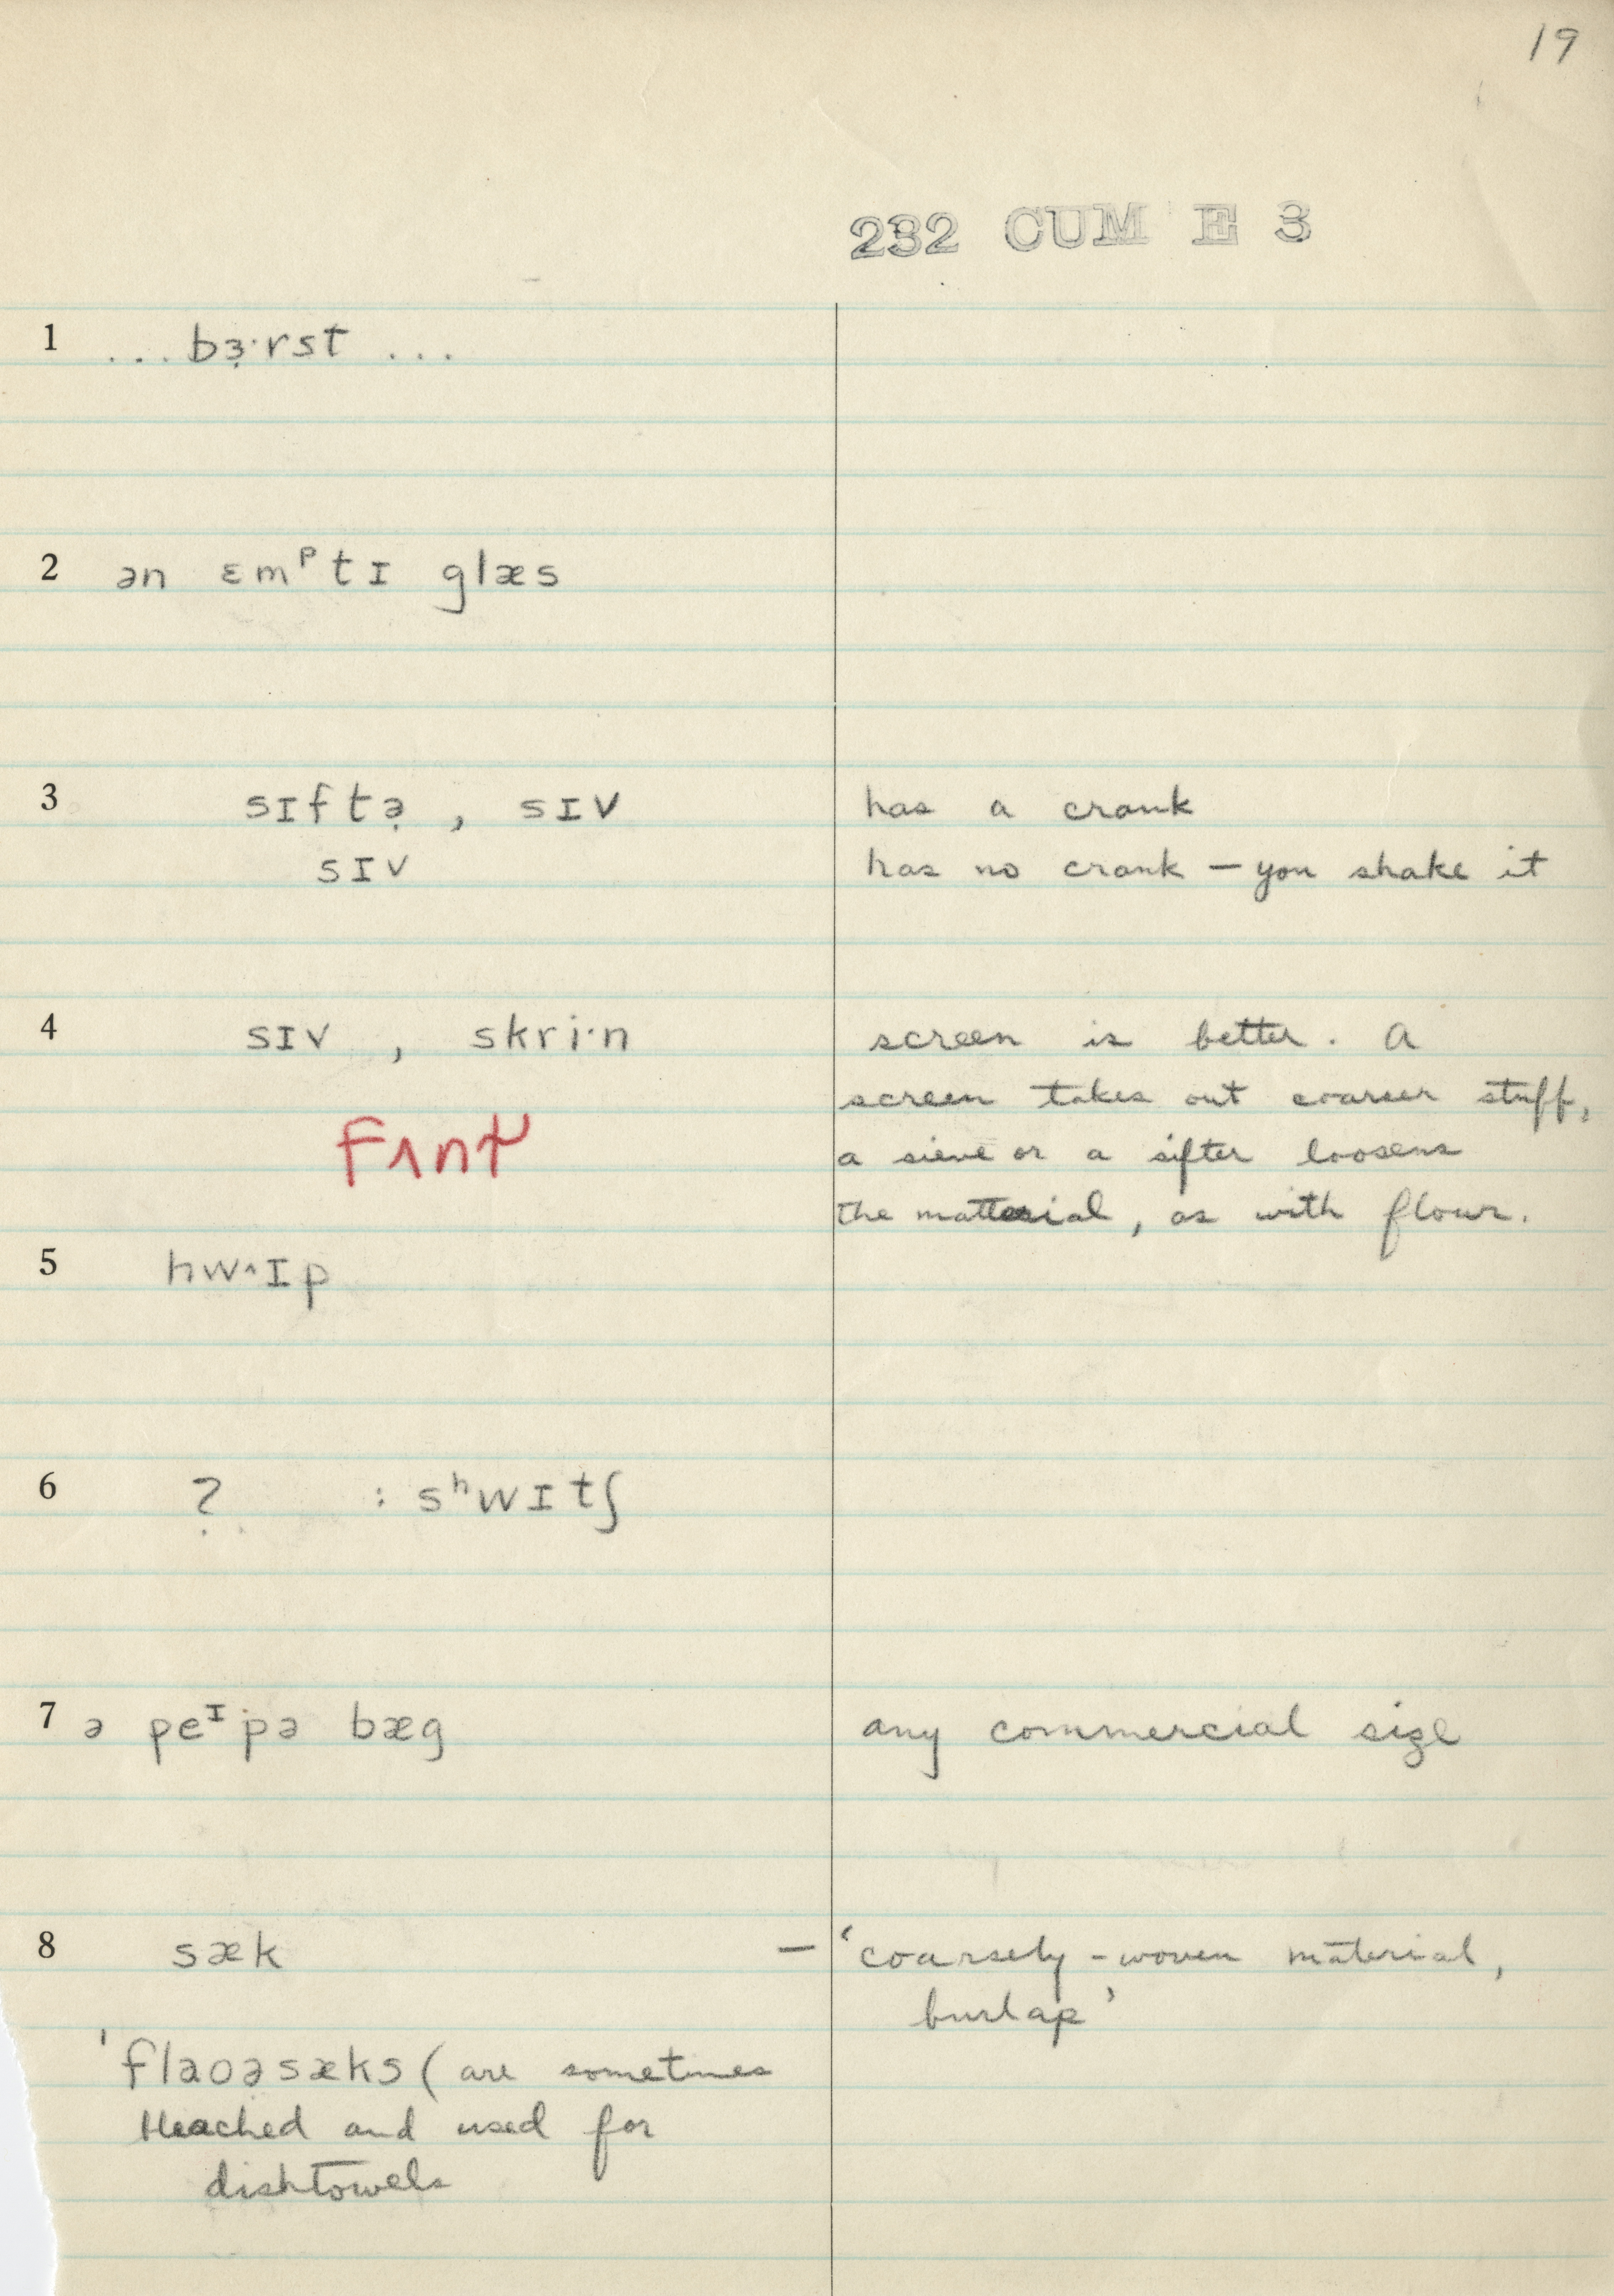 19
232 CUM E 3
1 ... bɜ̣·rst ...
2 ən ɛmᵖtɪ glæs
3 sɪftə̣ , sɪv has a crank
sɪv has no crank – you shake it
4 sɪv , skri·n screen is better. A
screen takes out coarser stuff,
a sieve or a sifter loosens
the material, as with flour.
5 hwˑɪp
6 ? : sʰwɪtʃ
7 ə peᶦpə bæg any commercial size
8 sæk – 'coarsely-woven material,
burlap'
'flaoəsæks (are sometimes
bleached and used for
dishtowels